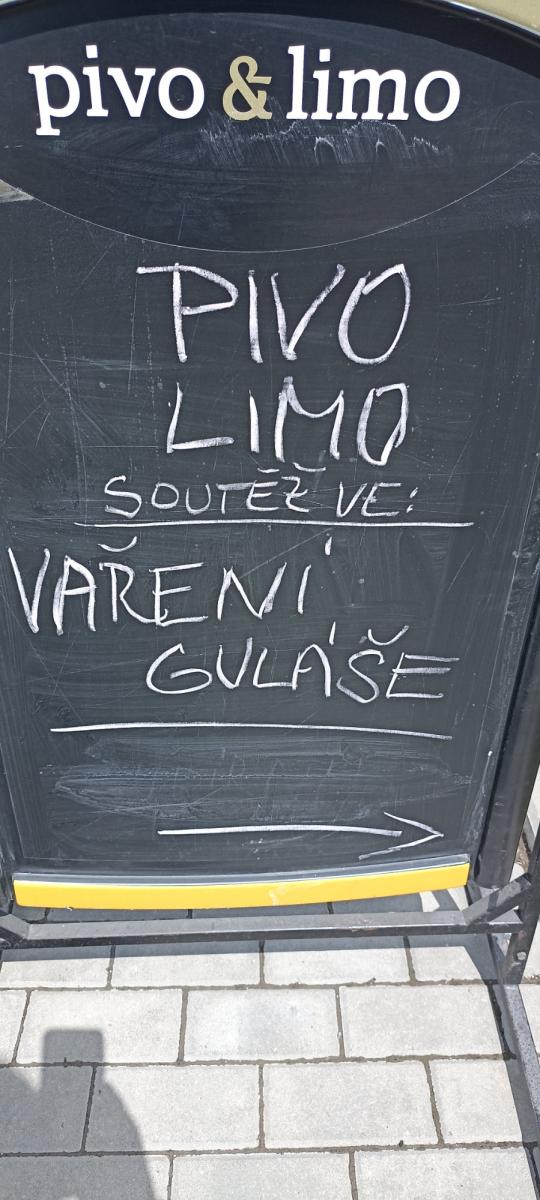 pivo & limo
PIVO
LIMO
SOUTĚŽ VE:
VAŘENÍ
GULÁŠE